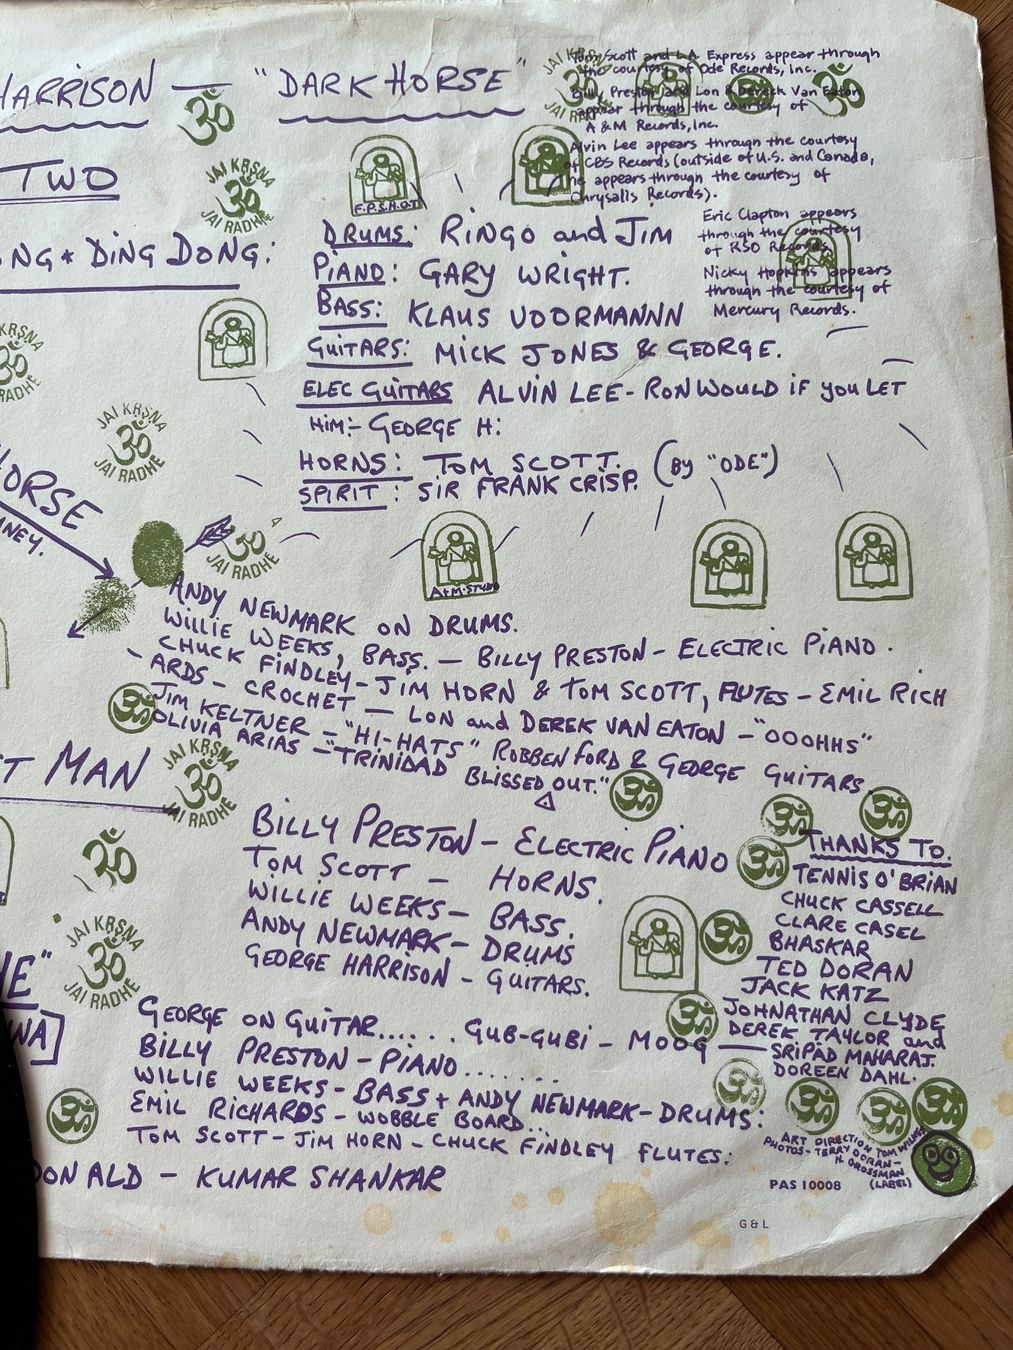 HARRISON — "DARK HORSE"
Tom Scott and L.A. Express appear through
the courtesy of Ode Records, Inc.
Billy Preston and Lon & Dereck Van Eaton
appear through the courtesy of
A & M Records, Inc.
Alvin Lee appears through the courtesy
of CBS Records (outside of U.S. and Canada,
he appears through the courtesy of
Chrysalis Records).
Eric Clapton appears
through the courtesy
of RSO Records.
Nicky Hopkins appears
through the courtesy of
Mercury Records.
TWO
ONG * DING DONG:
F.P.S.H.O.T
DRUMS: RINGO and JIM
PIANO: GARY WRIGHT.
BASS: KLAUS VOORMANNN
GUITARS: MICK JONES & GEORGE.
ELEC GUITARS ALVIN LEE - RON WOULD IF YOU LET
HIM:- GEORGE H:
HORNS: TOM SCOTT. (BY "ODE")
SPIRIT: SIR FRANK CRISP.
JAI KRṢNA
ॐ
JAI RADHE
JAI KRṢNA
ॐ
JAI RADHE
HORSE
ANEY.
ॐ
JAI RADHE
A+M·STUDIO
ANDY NEWMARK ON DRUMS.
WILLIE WEEKS, BASS. — BILLY PRESTON - ELECTRIC PIANO.
CHUCK FINDLEY - JIM HORN & TOM SCOTT, FLUTES - EMIL RICH
- ARDS - CROCHET — LON and DEREK VAN EATON - "OOOHHS"
JIM KELTNER - "HI-HATS" ROBBEN FORD & GEORGE GUITARS.
OLIVIA ARIAS - "TRINIDAD BLISSED OUT."
T MAN
JAI KRṢNA
ॐ
JAI RADHE
BILLY PRESTON - ELECTRIC PIANO
TOM SCOTT — HORNS.
WILLIE WEEKS - BASS.
ANDY NEWMARK - DRUMS
GEORGE HARRISON - GUITARS.
THANKS TO.
TENNIS O'BRIAN
CHUCK CASSELL
CLARE CASEL
BHASKAR
TED DORAN
JACK KATZ
JOHNATHAN CLYDE
DEREK TAYLOR and
SRIPAD MAHARAJ.
DOREEN DAHL.
JAI KRṢNA
ॐ
JAI RADHE
NE"
NA]
GEORGE ON GUITAR...... GUB-GUBI - MOOG —
BILLY PRESTON - PIANO.......
WILLIE WEEKS - BASS + ANDY NEWMARK - DRUMS:
EMIL RICHARDS - WOBBLE BOARD...
TOM SCOTT - JIM HORN - CHUCK FINDLEY FLUTES:
DONALD — KUMAR SHANKAR
ART DIRECTION TOM WILKES
PHOTOS - TERRY DORAN -
H. GROSSMAN
(LABEL)
PAS 10008
G & L